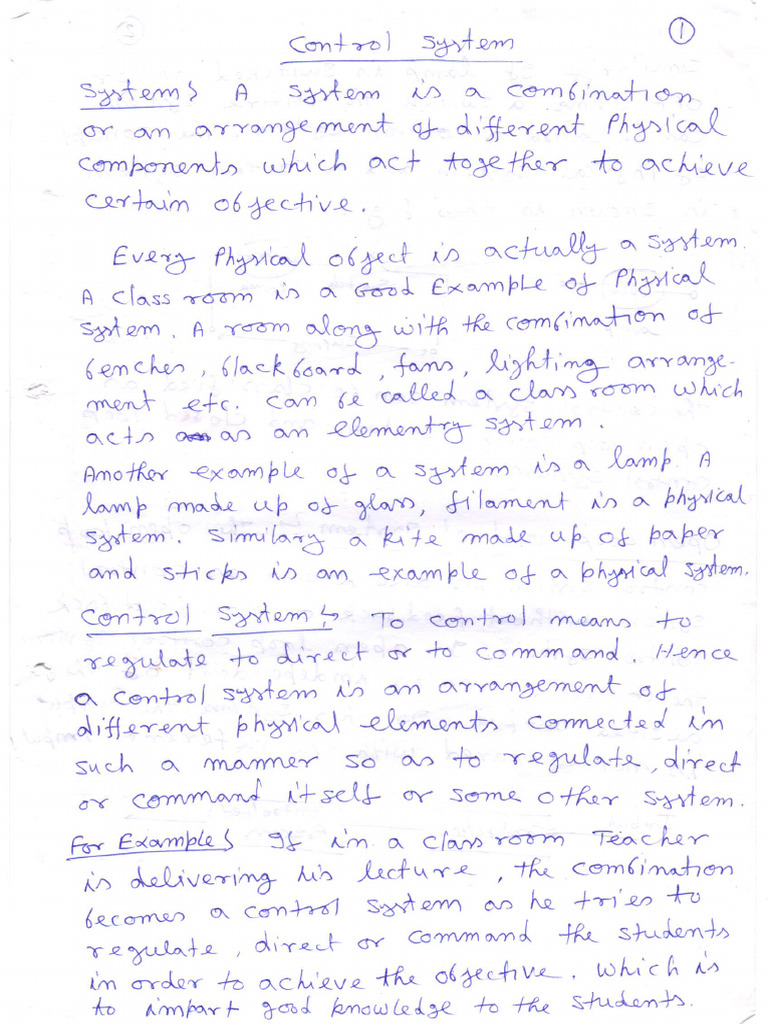 1
Control System
System: A system is a combination
or an arrangement of different Physical
components which act together to achieve
certain objective.
Every Physical object is actually a system.
A class room is a Good Example of Physical
system. A room along with the combination of
benches, black board, fans, lighting arrange-
ment etc. can be called a class room which
acts as an elementry system.
Another example of a system is a lamp. A
lamp made up of glass, filament is a physical
system. Similary a kite made up of paper
and sticks is an example of a physical system.
Control System: To control means to
regulate to direct or to command. Hence
a control system is an arrangement of
different physical elements connected in
such a manner so as to regulate, direct
or command itself or some other system.
For Example: If in a class room Teacher
is delivering his lecture, the combination
becomes a control system as he tries to
regulate, direct or command the students
in order to achieve the objective. Which is
to impart good knowledge to the students.